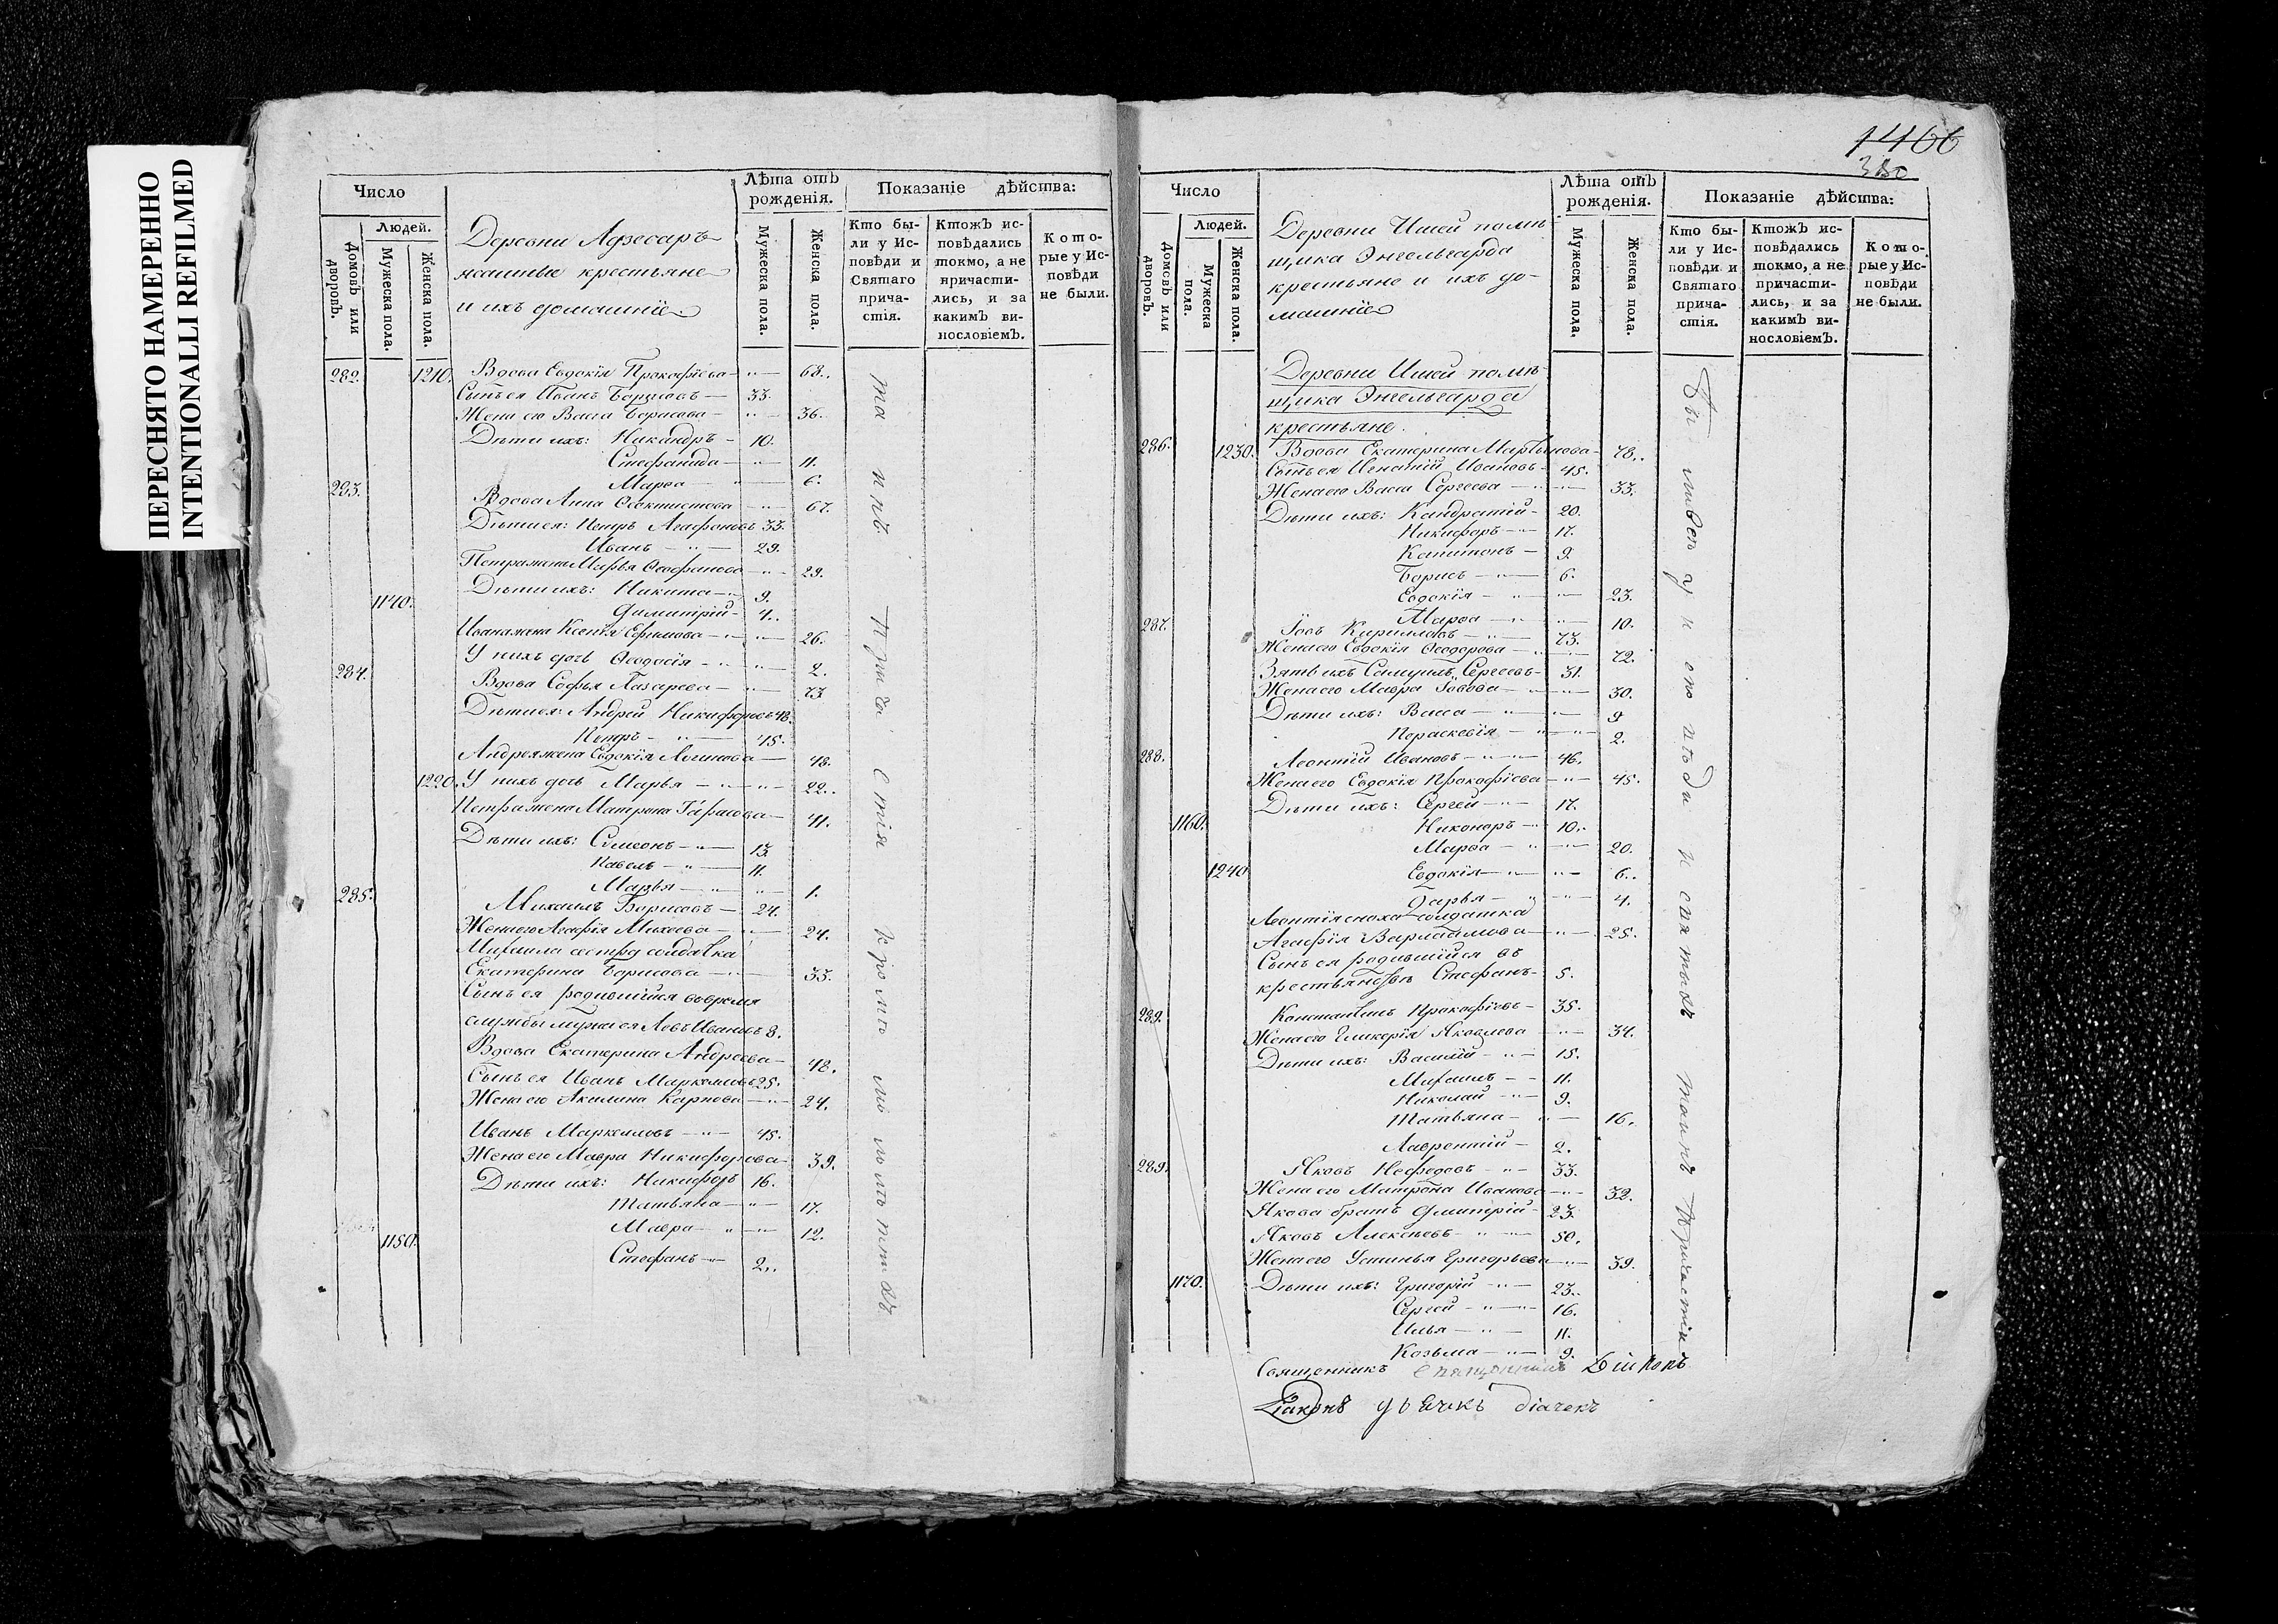 ПЕРЕСНЯТО НАМЕРЕННО
INTENTIONALLI REFILMED
Число
Людей.
Домовъ или дворовъ.
Мужеска пола.
Женска пола.
Деревни
крестьяне
и ихъ домашніе
Лѣта отъ рожденія.
Мужеска пола.
Женска пола.
Показаніе дѣйства:
Кто были у Исповѣди и Святаго причастія.
Ктожъ исповѣдались токмо, а не причастились, и за какимъ винословіемъ.
Которые у Исповѣди не были.
282. 1210. Вдова Евдокія Прокофіева — 68.
Сынъ ея Иванъ Борисовъ — 33.
Жена его Васса Борисова — 36.
Дѣти ихъ: Никандръ — 10.
Стефанида — 11.
Марѳа — 6.
283. Вдова Анна Ѳеоктистова — 67.
Дѣти ея: Петръ Агафоновъ 33.
Иванъ — 29.
Петра жена Марья Ѳеофанова — 29.
Дѣти ихъ: Никита — 9.
1140. Димитрій — 4.
Ивана жена Ксенія Ефимова — 26.
У нихъ дочь Ѳеодосія — 2.
284. Вдова Софья Лазарева — 73
Дѣти ея: Андрей Никифоровъ 48.
Петръ — 45.
Андрея жена Евдокія Логинова — 48.
1220. У нихъ дочь Марья — 22.
Петра жена Матрона Тарасова — 41.
Дѣти ихъ: Симеонъ — 13.
Павелъ — 11.
Марья — 1.
285. Михаилъ Борисовъ — 24.
Жена его Агафія Михеева — 24.
Михаила сестра солдатка
Екатерина Борисова — 33.
Сынъ ея родившійся во время
службы мужа ея Левъ Ивановъ 8.
Вдова Екатерина Андреева — 48.
Сынъ ея Иванъ Маркеловъ 25.
Жена его Акилина Карпова — 24.
Иванъ Маркеловъ — 45.
Жена его Мавра Никифорова — 39.
Дѣти ихъ: Никифоръ 16.
Татьяна — 17.
Мавра — 12.
1150. Стефанъ — 2.
1466
380
Число
Людей.
Домовъ или дворовъ.
Мужеска пола.
Женска пола.
Деревни Ишей помѣ
щика Энгельгарда
крестьяне и ихъ до
машніе
Лѣта отъ рожденія.
Мужеска пола.
Женска пола.
Показаніе дѣйства:
Кто были у Исповѣди и Святаго причастія.
Ктожъ исповѣдались токмо, а не причастились, и за какимъ винословіемъ.
Которые у Исповѣди не были.
Деревни Ишей помѣ
щика Энгельгарда
крестьяне.
286. 1230. Вдова Екатерина Мартынова — 78.
Сынъ ея Игнатій Ивановъ — 45.
Жена его Васса Сергеева — 33.
Дѣти ихъ: Кандратій — 20.
Никифоръ — 17.
Капитонъ — 9.
Борисъ — 6.
Евдокія — 23.
Марѳа — 10.
287. Іовъ Кириловъ — 73.
Жена его Евдокія Ѳеодорова — 72.
Зять ихъ Самуилъ Сергеевъ — 31.
Жена его Мавра Іовова — 30.
Дѣти ихъ: Васса — 9
Параскевія — 2.
288. Леонтій Ивановъ — 46.
Жена его Евдокія Прокофіева — 45.
Дѣти ихъ: Сергей — 17.
1160. Никоноръ — 10.
Марѳа — 20.
1240 Евдокія — 6.
Дарья — 4.
Леонтія сноха солдатка
Агафія Варлаамова — 25.
Сынъ ея родившійся въ
крестьянствѣ Стефанъ — 5.
289. Константинъ Прокофіевъ — 35.
Жена его Гликерія Яковлева — 34.
Дѣти ихъ: Василій — 15.
Михаилъ — 11.
Николай — 9.
Татьяна — 16.
Лаврентій — 2.
289. Яковъ Нефедовъ — 33.
Жена его Матрона Иванова — 32.
Якова братъ Дмитрій — 23.
Яковъ Алексѣевъ — 50.
Жена его Устинья Григорьева — 39.
1170. Дѣти ихъ: Григорій — 23.
Сергей — 16.
Илья — 11.
Козьма — 9.
Священникъ
Діаконъ